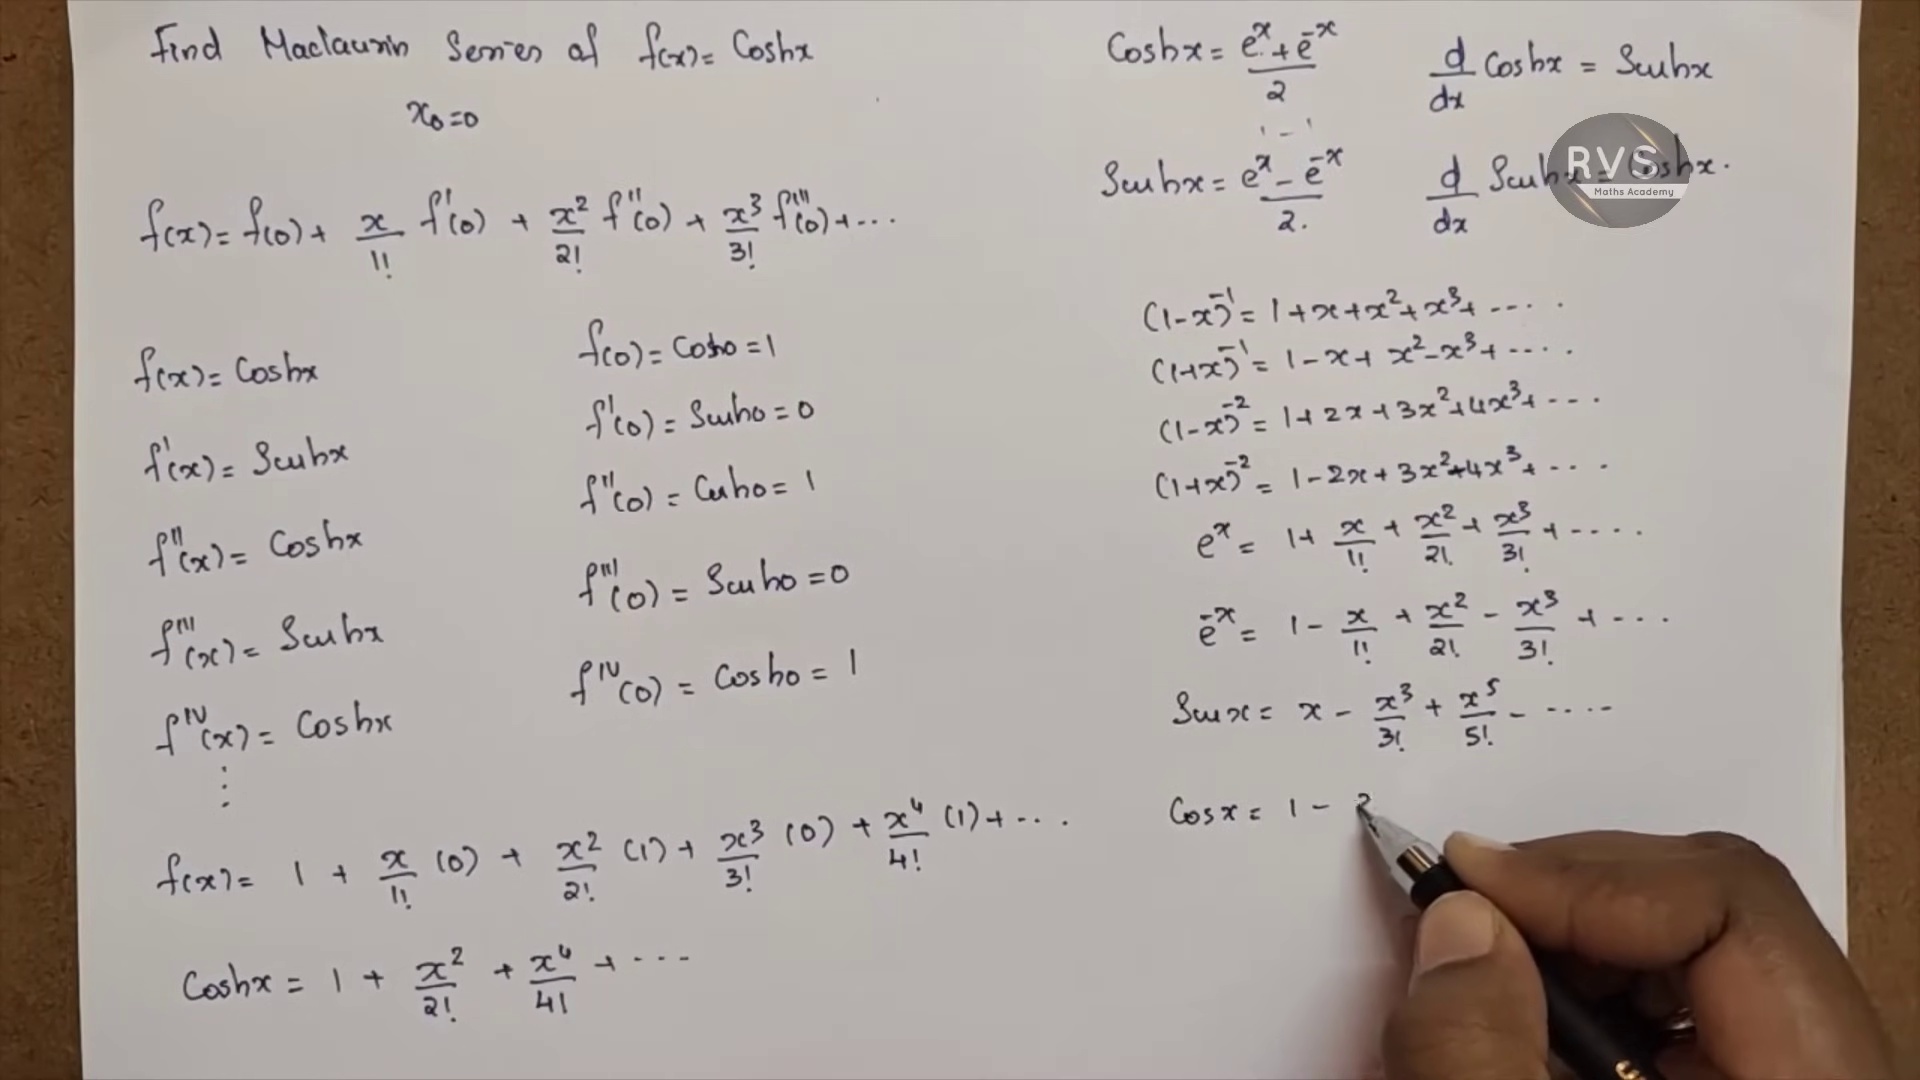 Find Maclaurin Series of f(x) = Coshx
x₀=0
f(x) = f(0) + x/1! f'(0) + x²/2! f''(0) + x³/3! f'''(0) + ...
f(x) = Coshx
f(0) = Cosh0 = 1
f'(x) = Sinhx
f'(0) = Sinh0 = 0
f''(x) = Coshx
f''(0) = Cosh0 = 1
f'''(x) = Sinhx
f'''(0) = Sinh0 = 0
fᴵⱽ(x) = Coshx
fᴵⱽ(0) = Cosh0 = 1
⋮
f(x) = 1 + x/1! (0) + x²/2! (1) + x³/3! (0) + x⁴/4! (1) + ...
Coshx = 1 + x²/2! + x⁴/4! + ...
Coshx = (eˣ + e⁻ˣ)/2
d/dx Coshx = Sinhx
Sinhx = (eˣ - e⁻ˣ)/2.
d/dx Sinhx = Coshx.
RVS
Maths Academy
(1-x)⁻¹ = 1 + x + x² + x³ + ....
(1+x)⁻¹ = 1 - x + x² - x³ + ....
(1-x)⁻² = 1 + 2x + 3x² + 4x³ + ...
(1+x)⁻² = 1 - 2x + 3x² - 4x³ + ....
eˣ = 1 + x/1! + x²/2! + x³/3! + ....
e⁻ˣ = 1 - x/1! + x²/2! - x³/3! + ....
Sinx = x - x³/3! + x⁵/5! - .....
Cosx = 1 -